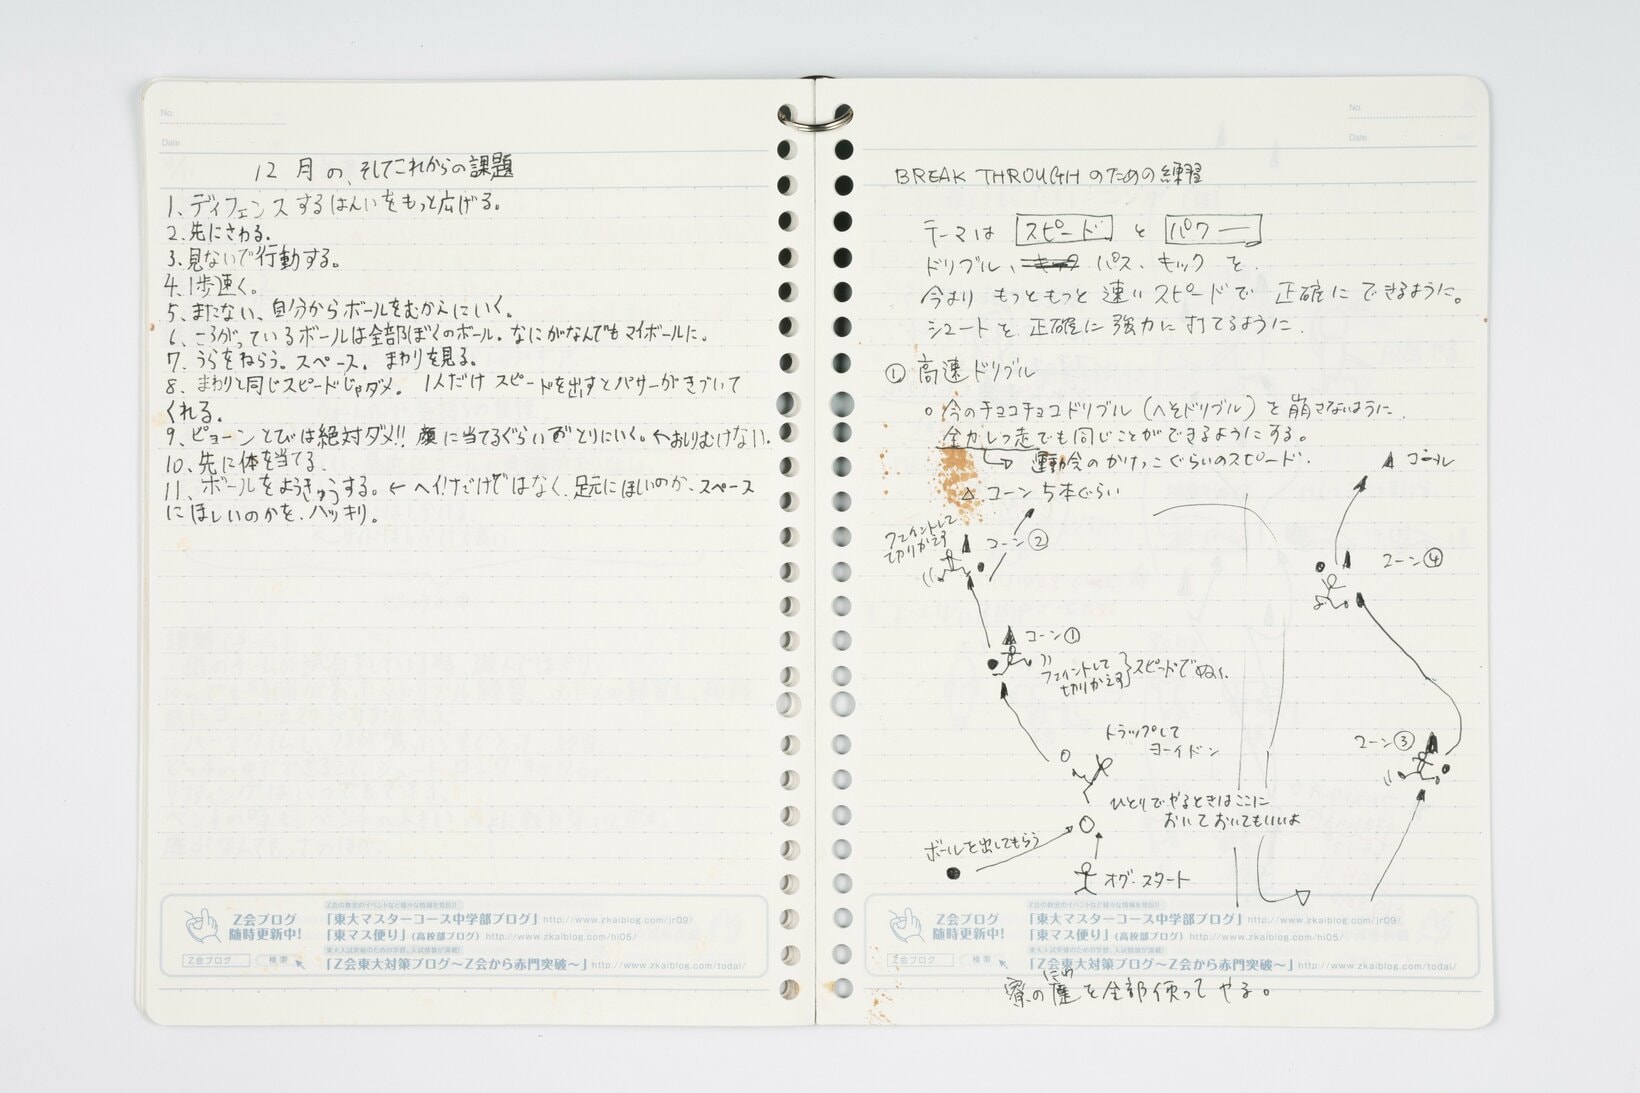 No.
Date
12月の、そしてこれからの課題
1、ディフェンスするはんいをもっと広げる。
2、先にさわる。
3、見ないで行動する。
4、1歩速く。
5、またない、自分からボールをむかえにいく。
6、ころがっているボールは全部ぼくのボール。なにがなんでもマイボールに。
7、うらをねらう。スペース。まわりを見る。
8、まわりと同じスピードじゃダメ。1人だけスピードを出すとパサーがきづいて
くれる。
9、ピョーンとびは絶対ダメ!!顔に当てるぐらいでとりにいく。←おしりむけない。
10、先に体を当てる。
11、ボールをようきゅうする。←ヘイ!だけではなく、足元にほしいのか、スペース
にほしいのかを、ハッキリ。
Z会の教室のイベントなど様々な情報を発信!!
Z会ブログ
随時更新中!
「東大マスターコース中学部ブログ」http://www.zkaiblog.com/jr09/
「東マス便り」(高校部ブログ) http://www.zkaiblog.com/hi05/
Z会ブログ 検索
「Z会東大対策ブログ〜Z会から赤門突破〜」http://www.zkaiblog.com/todai/
No.
Date
BREAK THROUGHのための練習
テーマは スピード と パワー
ドリブル、パス、キックを
今より もっともっと 速いスピードで 正確にできるように。
シュートを正確に強力に打てるように.
① 高速ドリブル
○今のチョコチョコドリブル(へそドリブル)を崩さないように.
全力しっ走でも同じことができるようにする。
運動会のかけっこぐらいのスピード.
△ コーン5本ぐらい
ゴール
フェイントして
切りかえす
コーン②
コーン④
コーン①
フェイントして
切りかえす
スピードでぬく.
トラップして
ヨーイドン
コーン③
ひとりでやるときはここに
おいておいてもいいよ
ボールを出してもらう
オグ.スタート
Z会の教室のイベントなど様々な情報を発信!!
Z会ブログ
随時更新中!
「東大マスターコース中学部ブログ」http://www.zkaiblog.com/jr09/
「東マス便り」(高校部ブログ) http://www.zkaiblog.com/hi05/
Z会ブログ 検索
「Z会東大対策ブログ〜Z会から赤門突破〜」http://www.zkaiblog.com/todai/
にわ
寮の庭を全部使ってやる。